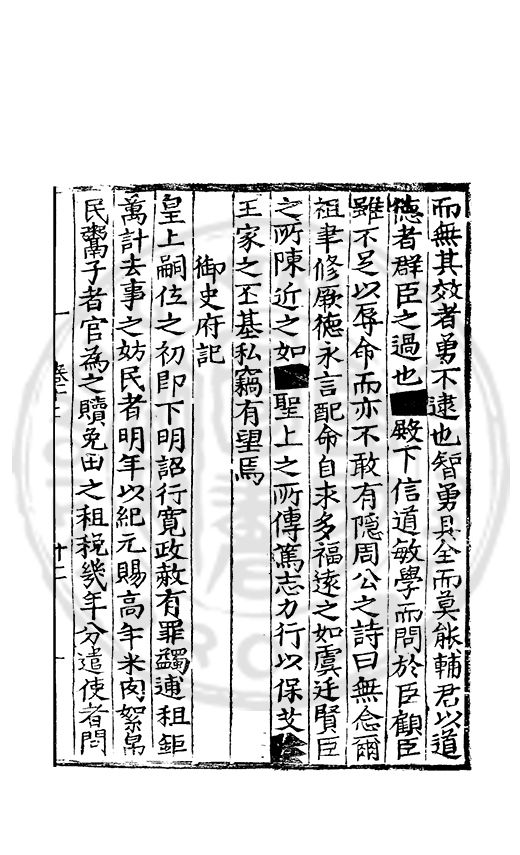 而無其效者勇不逮也智勇具全而莫能輔君以道
德者群臣之過也■殿下信道敏學而問於臣顧臣
雖不足以辱命而亦不敢有隱周公之詩曰無念爾
祖聿修厥德永言配命自求多福遠之如虞廷賢臣
之所陳近之如■聖上之所傳篤志力行以保艾
王家之丕基私竊有望焉
御史府記
皇上嗣位之初即下明詔行寬政赦有罪蠲逋租鉅
萬計去事之妨民者明年以紀元賜高年米肉絮帛
民鬻子者官為之贖免田之租稅幾年分遣使者問
卷十二
十二